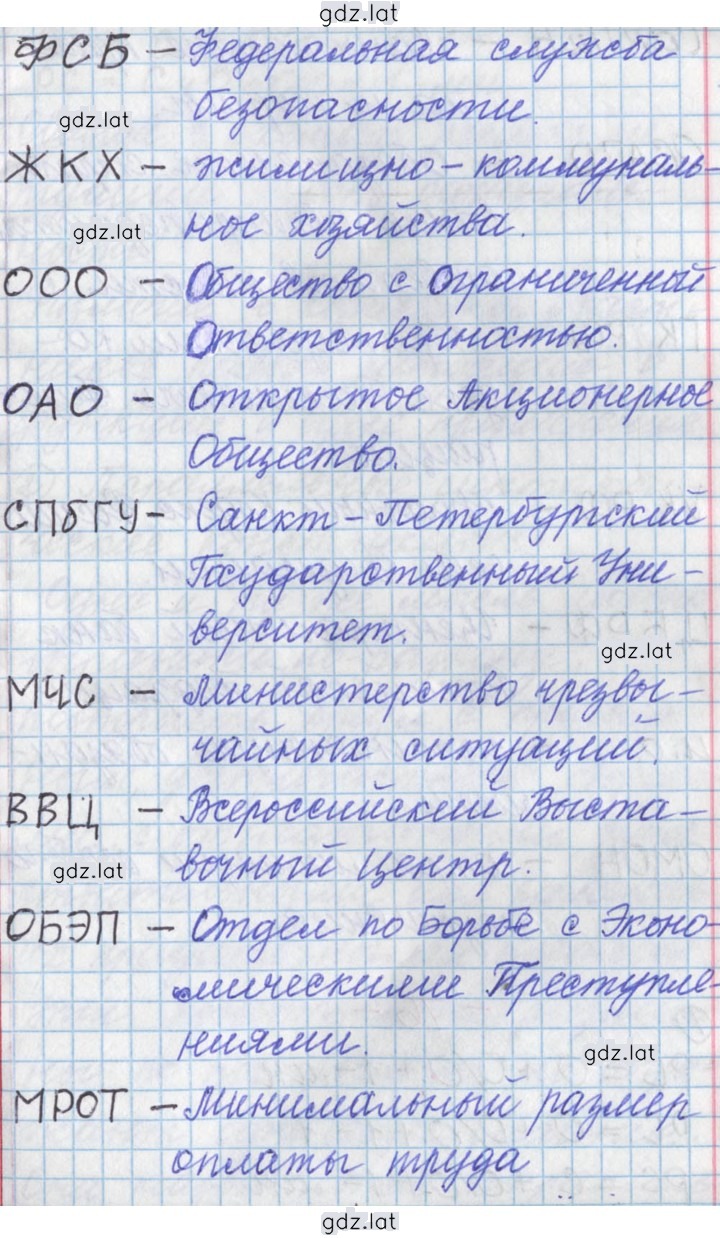 gdz.lat
ФСБ – Федеральная служба
безопасности.
gdz.lat
ЖКХ – жилищно-коммуналь-
ное хозяйства.
gdz.lat
ООО – Общество с Ограниченной
Ответственностью.
ОАО – Открытое Акционерное
Общество.
СПбГУ – Санкт-Петербургский
Государственный Уни-
верситет.
gdz.lat
МЧС – министерство чрезвы-
чайных ситуаций.
ВВЦ – Всероссийский Выста-
вочный Центр.
gdz.lat
ОБЭП – Отдел по Борьбе с Эконо-
мическими Преступле-
ниями.
gdz.lat
МРОТ – минимальный размер
оплаты труда
gdz.lat